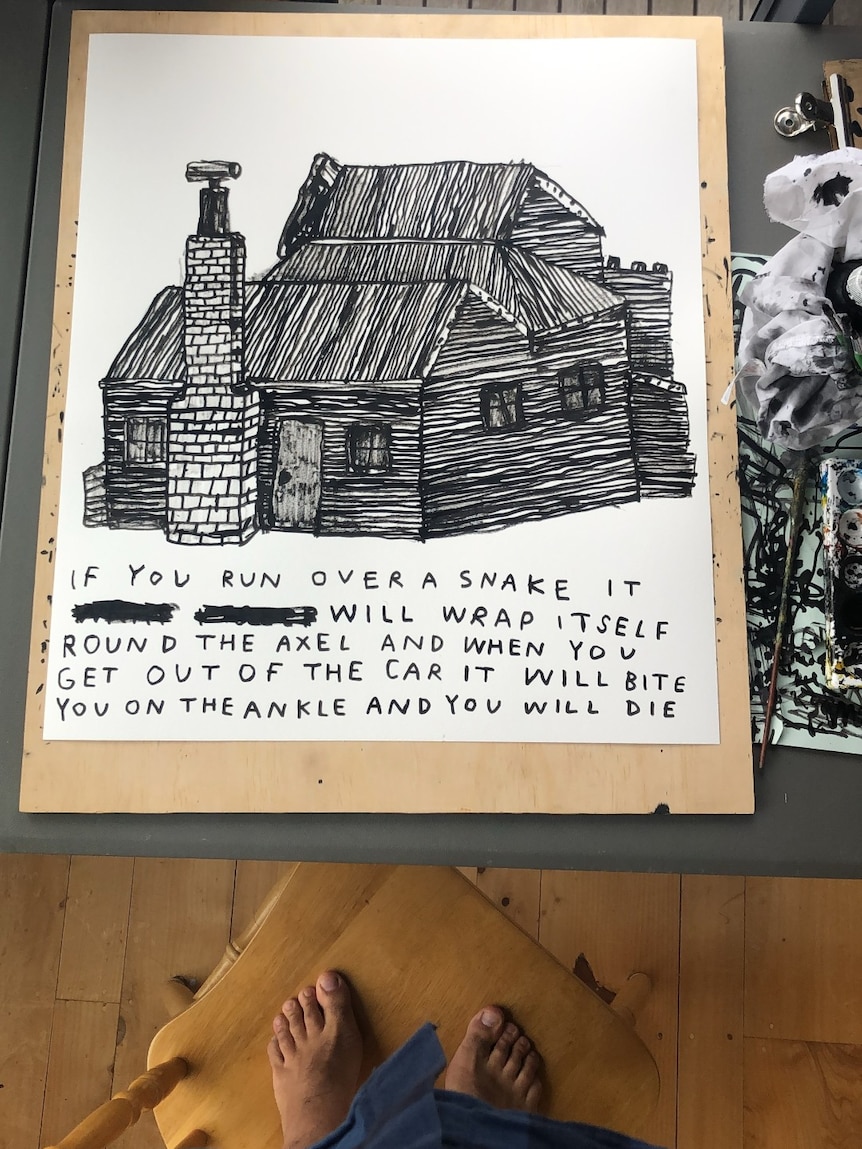 IF YOU RUN OVER A SNAKE IT
WILL WRAP ITSELF
ROUND THE AXEL AND WHEN YOU
GET OUT OF THE CAR IT WILL BITE
YOU ON THE ANKLE AND YOU WILL DIE